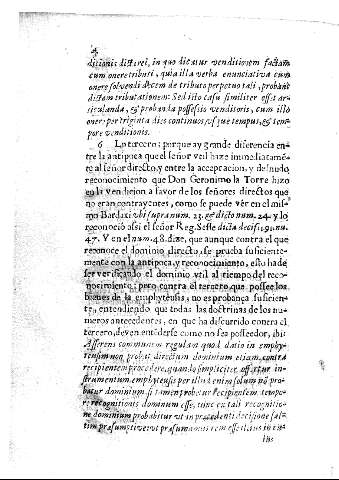 4
ditionis disserel, in quo dicatur venditionem factam
cum onere tributi, quia illa verba enunciativa cum
onere solvendi decem de tributo perpetuo tali, probant
dictam tributationem: Sed illo casu similiter esset ar-
ticulanda, & probanda possessio venditoris, cum illo
onere per triginta dies continuos, usque tempus, & tem-
pore venditionis.
6 Lo tercero; porque ay grande diferencia en-
tre la antipoca que el señor vtil haze immediatamẽ-
te al señor directo, y entre la acceptacion, y desnudo
reconocimiento que Don Geronimo la Torre hizo
en la vendicion a favor de los señores directos que
no eran contrayentes, como se puede vèr en el mis-
mo Bardaxi vbi supra num. 23. & dicto num. 24. y lo
reconociò assi el señor Reg. Sesse dicta decis. 191. nu.
47. Y en el num. 48. dize, que aunque contra el que
reconoce el dominio directo, se prueba suficiente-
mente con la antipoca, y reconocimiento, esto ha de
ser verificando el dominio vtil al tiempo del reco-
nocimiento; pero contra el tercero que possee los
bienes de la emphyteusis, no es probança suficien-
te, entendiendo que todas las doctrinas de los nu-
meros antecedentes, en que ha discurrido contra el
tercero, deven entenderse como no sea posseedor, ibi:
Afferens communem regulam quod datio in emphy-
teusim non probat directum dominium etiam, contra
recipientem procedere, quando simpliciter effertur in-
strumentum emphyteusis per illud enim solum nõ pro-
batur dominium, si tamen probetur recipientem tempo-
re recognitionis dominum esse, tunc ex tali recognitio-
ne dominium probabitur vt in precedenti decisione sal-
tim præsumptive vt præsumamus rem esse talis in cu-
ius